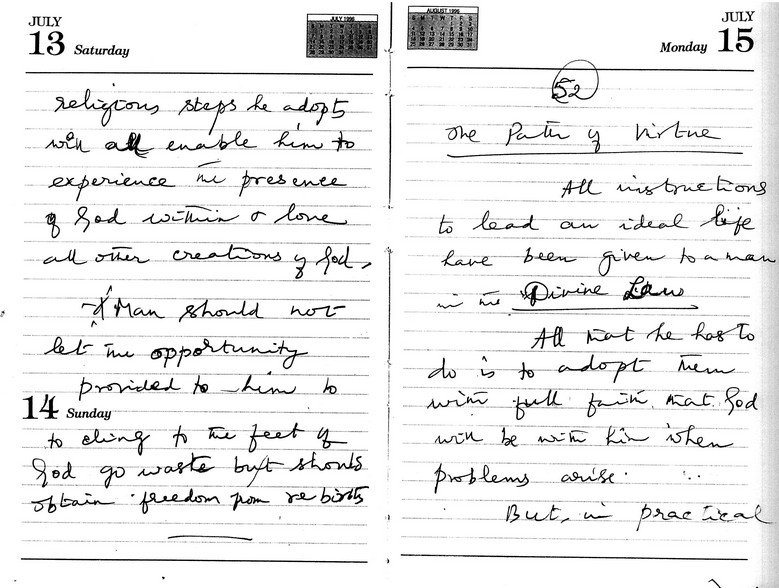 JULY
13 Saturday
JULY 1996
religious steps he adopts
will all enable him to
experience the presence
of God within & love
all other creations of God,
Man should not
let the opportunity
provided to him to
14 Sunday
to cling to the feet of
God go waste but should
obtain freedom from rebirths
AUGUST 1996
JULY
Monday 15
52
The Path of Virtue
All instructions
to lead an ideal life
have been given to a man
in the Divine Law
All that he has to
do is to adopt them
with full faith that God
will be with him when
problems arise.
But, in practical